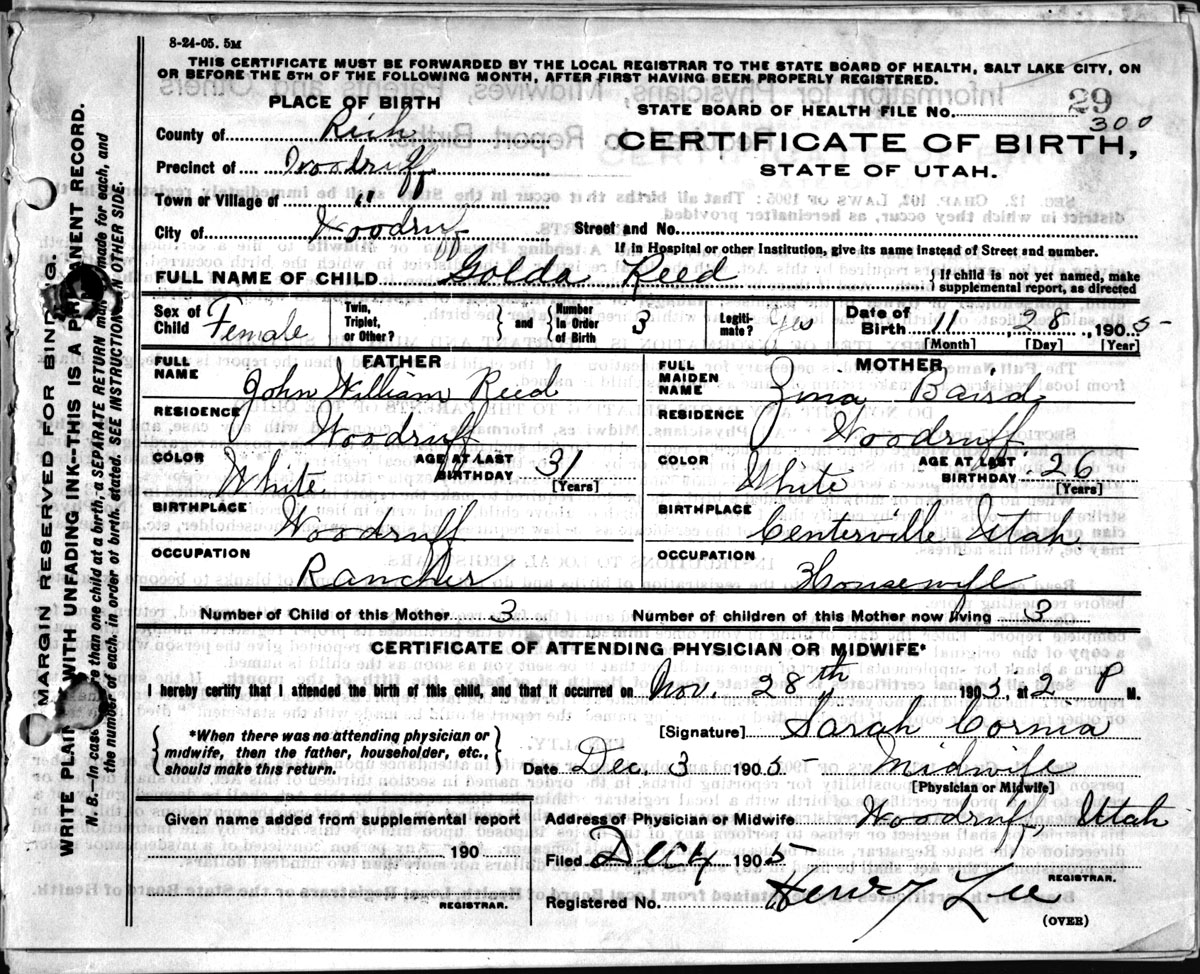 8-24-05. 5M
THIS CERTIFICATE MUST BE FORWARDED BY THE LOCAL REGISTRAR TO THE STATE BOARD OF HEALTH, SALT LAKE CITY, ON
OR BEFORE THE 5TH OF THE FOLLOWING MONTH, AFTER FIRST HAVING BEEN PROPERLY REGISTERED.
PLACE OF BIRTH
County of Rich
Precinct of Woodruff
Town or Village of "
City of Woodruff
STATE BOARD OF HEALTH FILE NO. 29
300
CERTIFICATE OF BIRTH,
STATE OF UTAH.
Street and No.
If in Hospital or other Institution, give its name instead of Street and number.
FULL NAME OF CHILD Golda Reed
If child is not yet named, make
supplemental report, as directed
Sex of Child Female
Twin, Triplet, or Other?
and
Number in Order of Birth 3
Legitimate? Yes
Date of Birth 11 28 1905
[Month] [Day] [Year]
FATHER
FULL NAME John William Reed
RESIDENCE Woodruff
COLOR White
AGE AT LAST BIRTHDAY 31
[Years]
BIRTHPLACE Woodruff
OCCUPATION Rancher
MOTHER
FULL MAIDEN NAME Zina Baird
RESIDENCE Woodruff
COLOR White
AGE AT LAST BIRTHDAY 26
[Years]
BIRTHPLACE Centerville, Utah
OCCUPATION Housewife
Number of Child of this Mother 3
Number of children of this Mother now living 3
CERTIFICATE OF ATTENDING PHYSICIAN OR MIDWIFE*
I hereby certify that I attended the birth of this child, and that it occurred on Nov. 28th 1905, at 2 P M.
*When there was no attending physician or
midwife, then the father, householder, etc.,
should make this return.
[Signature] Sarah Cornia
Date Dec. 3 1905 Midwife
[Physician or Midwife]
Given name added from supplemental report
190
REGISTRAR.
Address of Physician or Midwife Woodruff, Utah
Filed Dec 4 1905
REGISTRAR.
Registered No. Henry Lee
(OVER)
MARGIN RESERVED FOR BINDING.
WRITE PLAINLY WITH UNFADING INK--THIS IS A PERMANENT RECORD.
N. B.--In case more than one child at a birth, a SEPARATE RETURN must be made for each, and
the number of each, in order of birth, stated. SEE INSTRUCTIONS ON OTHER SIDE.